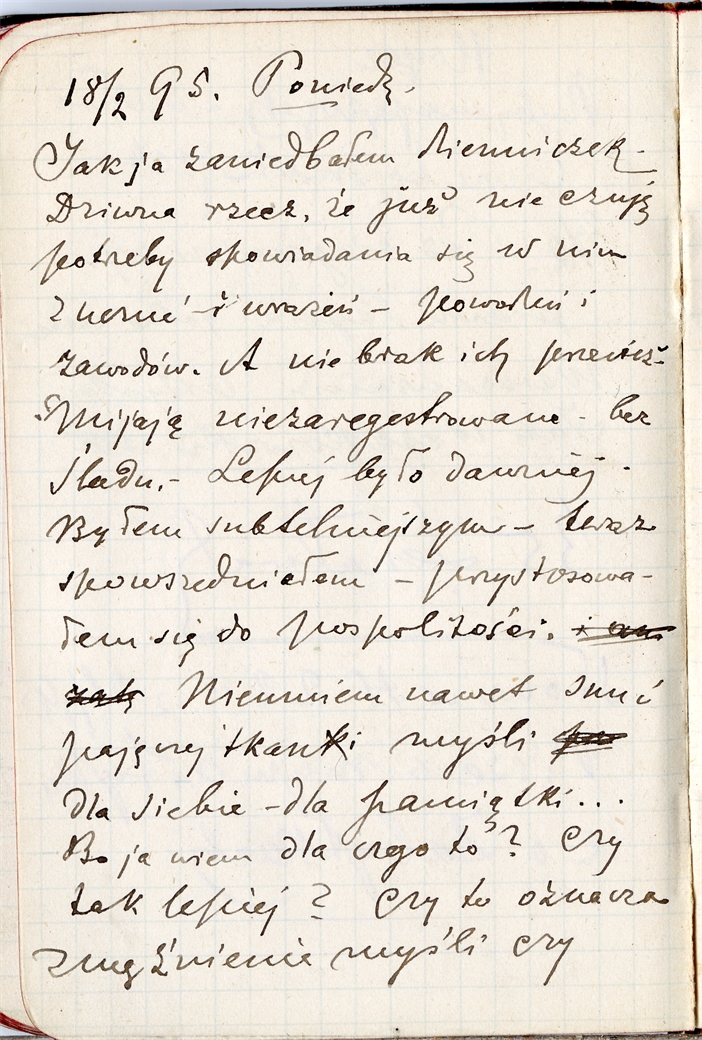 18/2 95. Poniedz.
Jak ja zaniedbałem dzienniczek –
Dziwna rzecz, że już nie czuję
potrzeby spowiadania się w nim
z wrażeń – powodzeń i
zawodów. A nie brak ich przecież –
Mijają niezaregestrowane – bez
śladu. – Lepiej było dawniej.
Byłem subtelniejszym – teraz
spowszedniałem – przystosowa-
łem się do pospolitości.
Nieumiem nawet snuć
pajęczej tkanki myśli
dla siebie – dla pamiątki...
Bo ja wiem dla czego to? Czy
tak lepiej? Czy to oznacza
zmęźnienie myśli czy